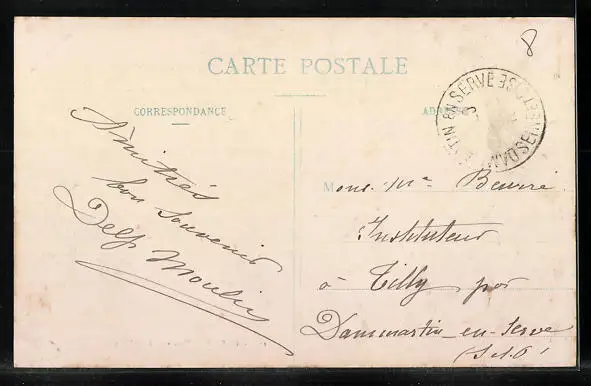 8
CARTE POSTALE
CORRESPONDANCE
Amitiés
bon souvenir
Delp Moulin
Mons. Mr Beurié
Instituteur
à Tilly par
Dammartin-en-Serve
(S.et.O.)